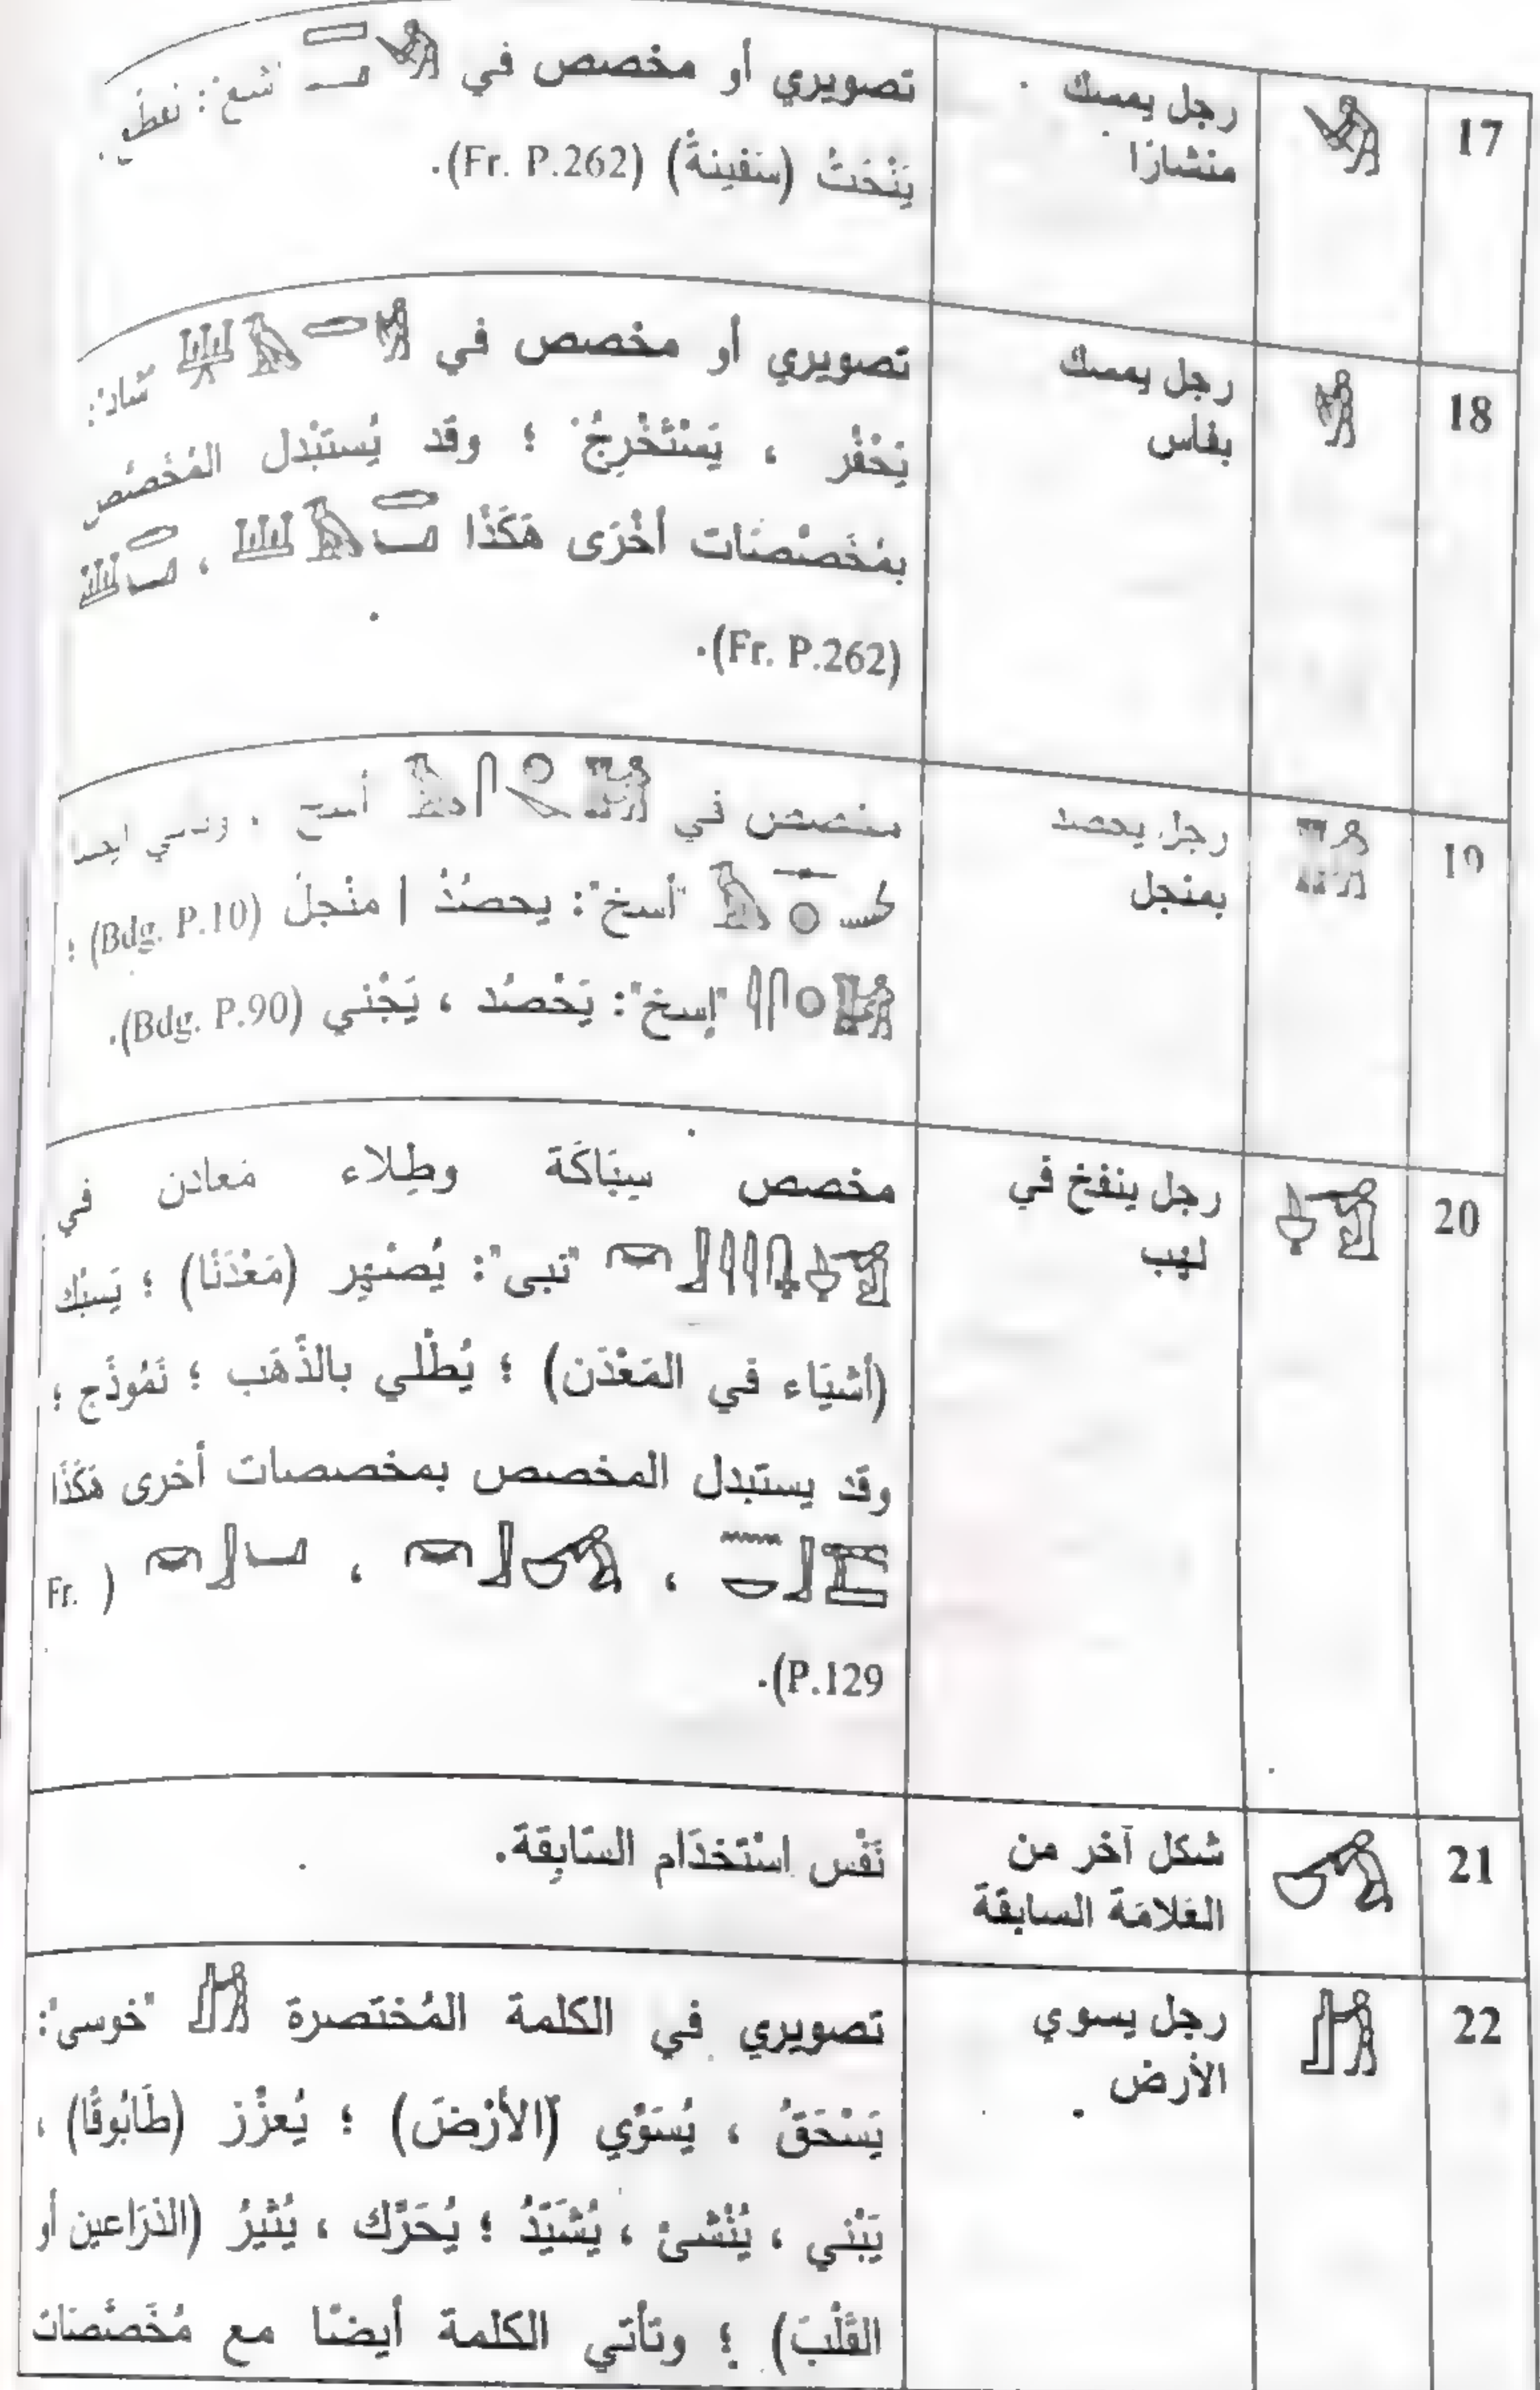 17
رجل يمسك
منشارًا
تصويري أو مخصص في "شع": نقطع،
يَنْحَتُ (سَفينةً) (Fr. P.262).
18
رجل يمسك
بفأس
تصويري أو مخصص في "شاد":
يَحْفُر ، يَسْتَخْرِجُ ؛ وقد يُستبْدل المُخَصِّص
بمُخَصِّصَات أخْرَى هَكَذا ،
(Fr. P.262).
19
رجل يحصد
بمنجل
مخصص في أسخ ،
"أسخ": يحصُدُ | منْجلَ (Bdg. P.10) ؛
"إسخ": يَحْصُد ، يَجْني (Bdg. P.90).
20
رجل ينفخ في
لهب
مخصص سِبَاكَة وطِلاء مَعادن في
"نبى": يُصْهِر (مَعْدَنًا) ؛ يَسبُك
(أشيَاء في المَعْدَن) ؛ يُطْلي بالذَّهَب ؛ نَمُوذَج ؛
وقد يستبدل المخصص بمخصصات أخرى هَكَذَا
، ، (Fr.
P.129).
21
شكل آخر من
العَلامَة السابقة
نَفْس اسْتخدَام السَّابِقَة.
22
رجل يسوي
الأرض
تصويري في الكلمة المُختصرة "خوسى":
يَسْحَقُ ، يُسَوِّي (الأرْضَ) ؛ يُعزِّز (طَابُوقًا) ،
يَبْني ، يُنْشئ ، يُشَيِّدُ ؛ يُحَرِّك ، يُثيرُ (الذرَاعين أو
القَلْبَ) ؛ وتأتي الكلمة أيضًا مع مُخَصِّصَات